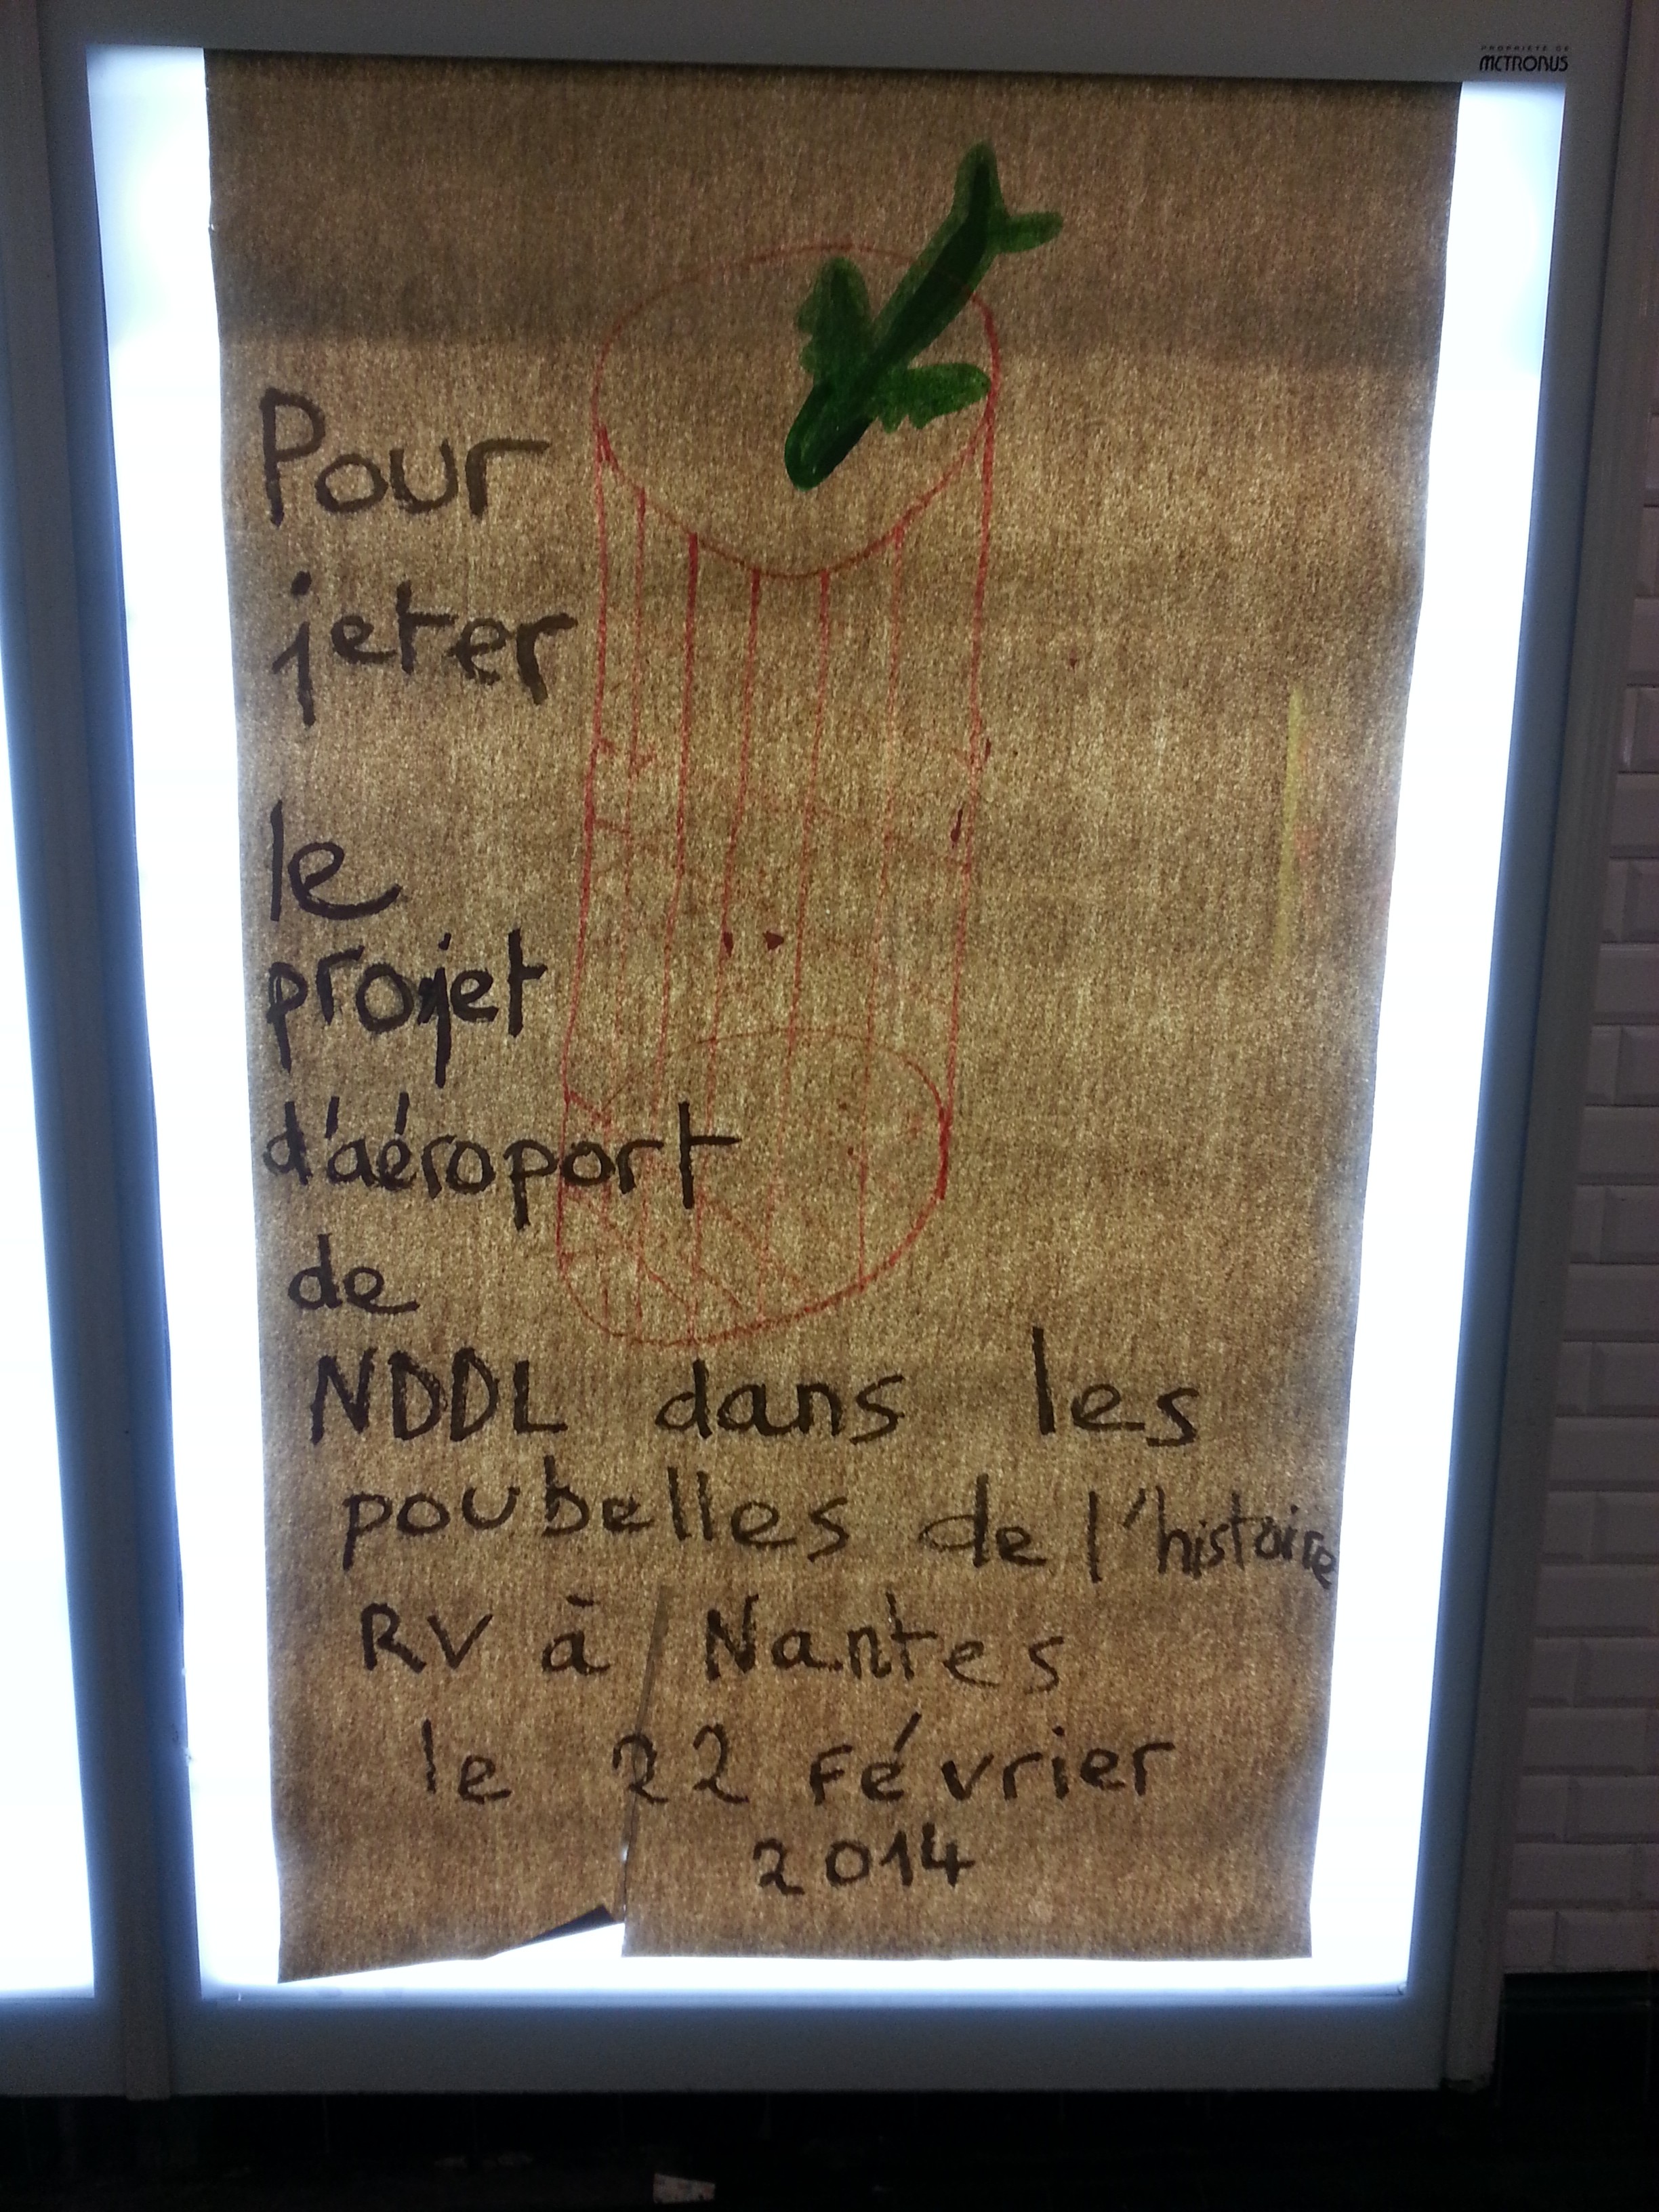 PROPRIETE DE
METROBUS
Pour
jeter
le
projet
d'aéroport
de
NDDL dans les
poubelles de l'histoire
RV à Nantes
le 22 Février
2014